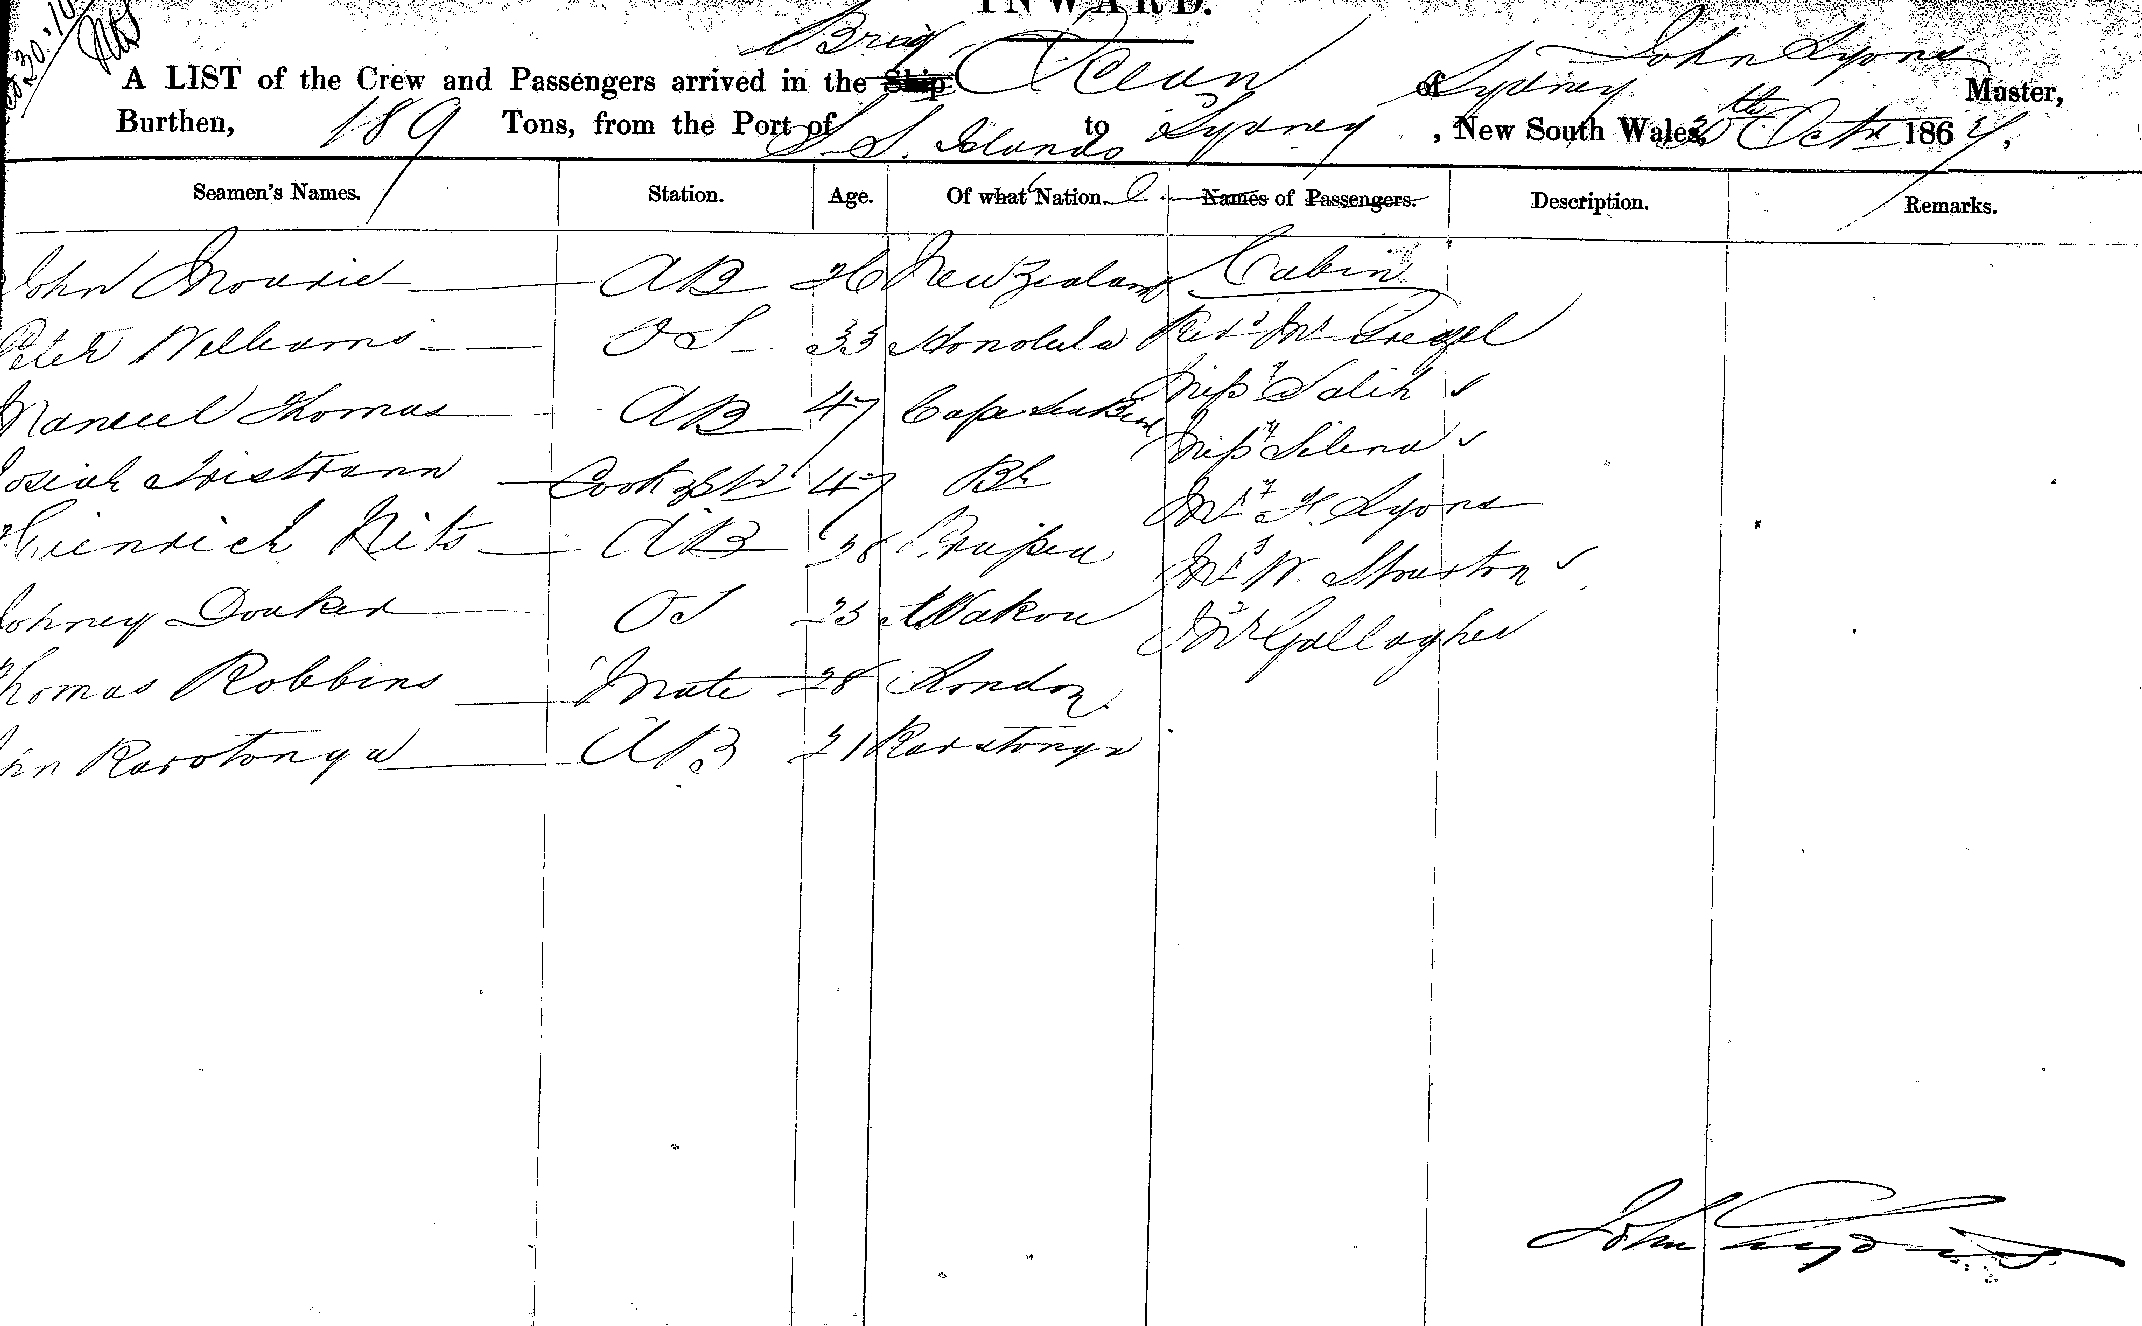 INWARD.
A LIST of the Crew and Passengers arrived in the Ship Brig Ocean of Sydney John Lyons Master,
Burthen, 189 Tons, from the Port of S. S. Islands to Sydney, New South Wales, 30th Octr 1864.
Seamen's Names. Station. Age. Of what Nation. Names of Passengers. Description. Remarks.
John Mowrie AB 26 New Zealand Cabin
Peter Williams OS 33 Honolulu Revd Mr
Manuel Thomas AB 47 Cape Miss
Josiah Tristrann Cook & St 47 Miss Silena
Heinrich Nits AB 38 Prussia Mr F. Lyons
Johney OS 23 Mr W.
Thomas Robbins Mate 28 London Mr Gallagher
John Rarotonga AB 21 Rarotonga
John Lyons